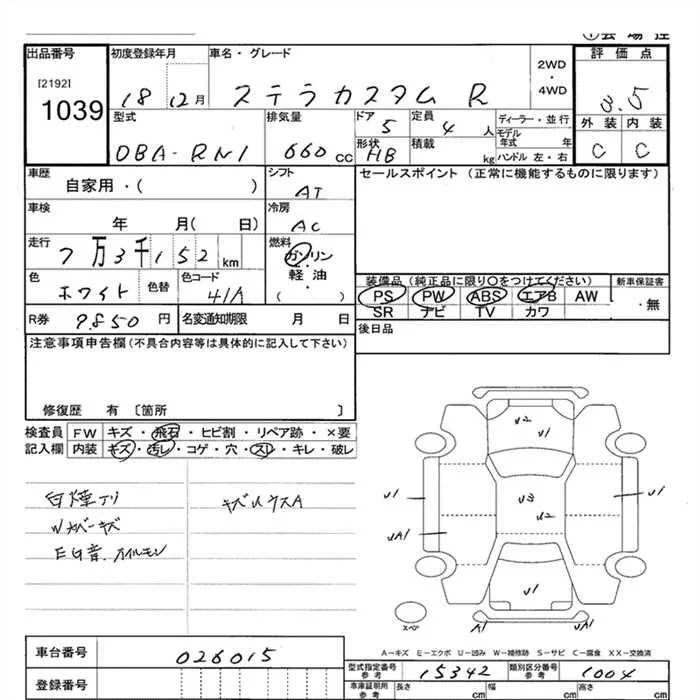 出品番号
[2192]
1039
初度登録年月
18 12月
車名・グレード
ステラカスタム R
2WD
・
4WD
評 価 点
3.5
型式
DBA-RN1
排気量
660 cc
ドア 5
定員 4 人
形状 HB
積載 kg
ディーラー・並行
モデル年式 年
ハンドル 左・右
外 装 内 装
C C
車歴
自家用・( )
シフト
AT
セールスポイント (正常に機能するものに限ります)
車検
年 月( 日)
冷房
AC
走行
7万3千152 km
燃料
ガソリン
軽 油
・
( )
色
ホワイト
色替
色コード
41A
装備品 (純正品に限り○をつけてください)
PS PW ABS エアB AW
SR ナビ TV カワ
新車保証書
・無
R券 9.850 円
名変通知期限 月 日
後日品
注意事項申告欄 (不具合内容等は具体的に記入して下さい)
修復歴 有 〔箇所 〕
検査員 FW キズ・飛石・ヒビ割・リペア跡・×要
記入欄 内装 キズ・汚レ・コゲ・穴・スレ・キレ・破レ
白煙アリ
キズ
U2
U1
U1
U3
U2
U1
UA1
U1
U1
A1
UA1
スペア
A−キズ E−エクボ U−凹み W−補修跡 S−サビ C−腐食 XX−交換済
車台番号
026015
登録番号
型式指定番号
参考
15342
類別区分番号
参考
1004
車庫証明用
参考
長さ cm
幅 cm
高さ cm